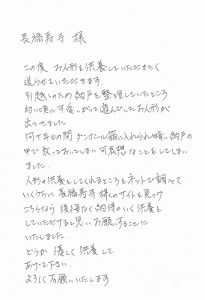 長福寿寺 様
この度 お人形を供養していただきたく
送らせていただきます。
引越しのため納戸を整理していたところ
幼い頃に可愛がって遊んでいたお人形が
出てきました。
何十年もの間 ダンボール箱に入れられ暗い納戸の
中で放っておいてしまい可哀想なことをしてしまい
ました。
人形の供養をしてくれるところをネットで調べて
いくうちに長福寿寺様のサイトを見つけ
こちらなら後悔なく納得のいく供養を
していただけると思いお願いすることに
いたしました。
どうか優しく供養して
あげて下さい。
よろしくお願いいたします